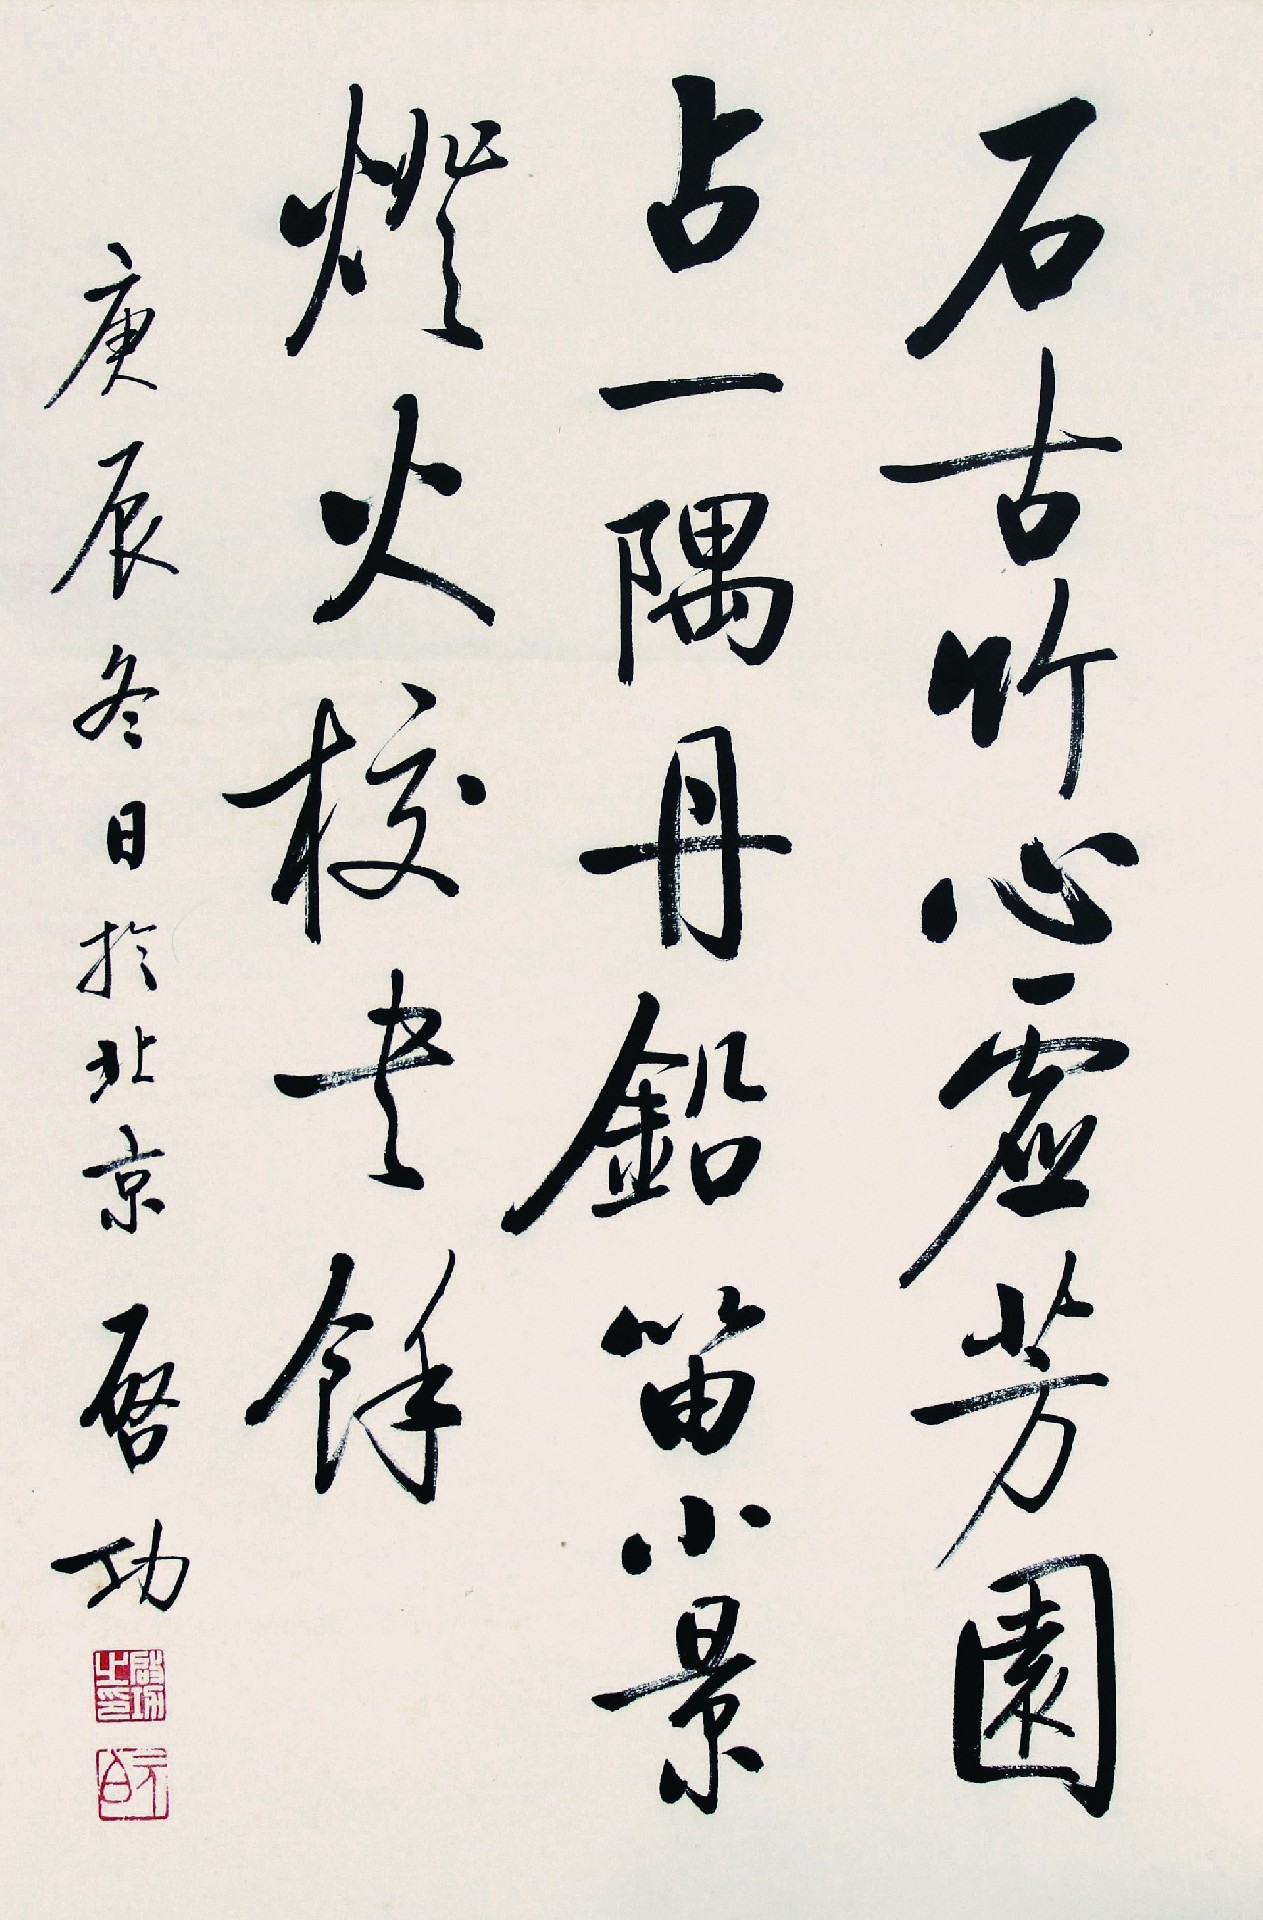 石古竹心虛芳園
占一隅丹鉛笛小景
燈火校書餘
庚辰冬日於北京 啓功
啟功之印
元白